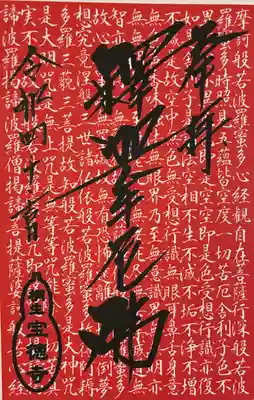 奉拝
釋迦牟尼佛
令和四
桐生宝徳寺
摩訶般若波羅蜜多心経観自在菩薩行深般若波
羅蜜多時照見五蘊皆空度一切苦厄舎利子色不
異空空不異色色即是空空即是色受想行識亦復
如是舎利子是諸法空相不生不滅不垢不浄不増
不減是故空中無色無受想行識無眼耳鼻舌身意
無色声香味触法無眼界乃至無意識界無無明亦
無無明尽乃至無老死亦無老死尽無苦集滅道無
智亦無得以無所得故菩提薩埵依般若波羅蜜多
故心無罣礙無罣礙故無有恐怖遠離一切顛倒夢
想究竟涅槃三世諸仏依般若波羅蜜多故得阿耨
多羅三藐三菩提故知般若波羅蜜多是大神咒
是大明咒是無上咒是無等等咒能除一切苦真
実不虚故説般若波羅蜜多咒即説咒曰羯諦羯
諦波羅羯諦波羅僧羯諦菩提薩婆訶般若心経